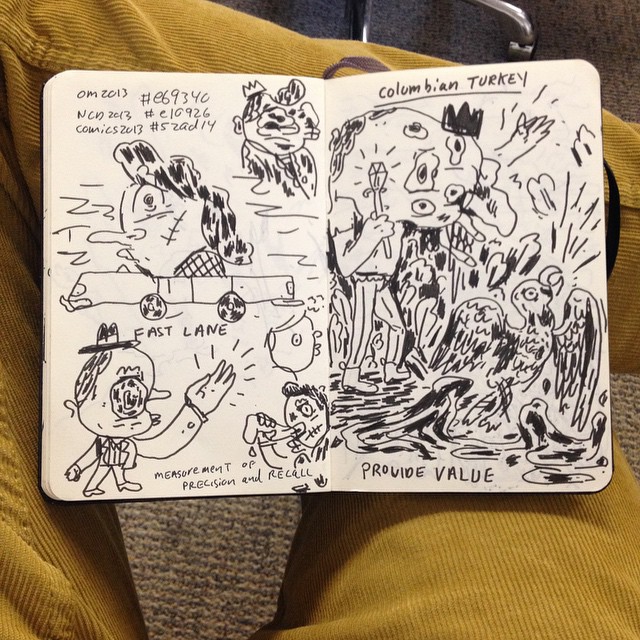 OM2013 #e69340
NCD2013 #e10926
comics2013 #52ad14
FAST LANE
MEASUREMENT OF
PRECISION and RECALL
columbian TURKEY
PROVIDE VALUE